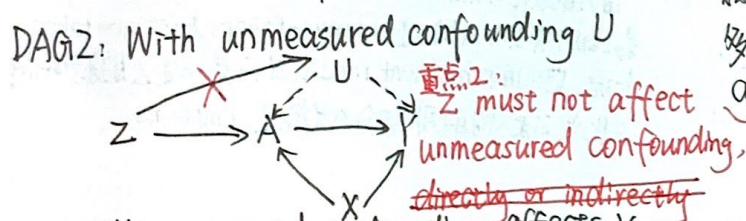 DAG2: With unmeasured confounding U
U
重点2:
Z must not affect
Z
A
Y
unmeasured confounding,
directly or indirectly
X
affects